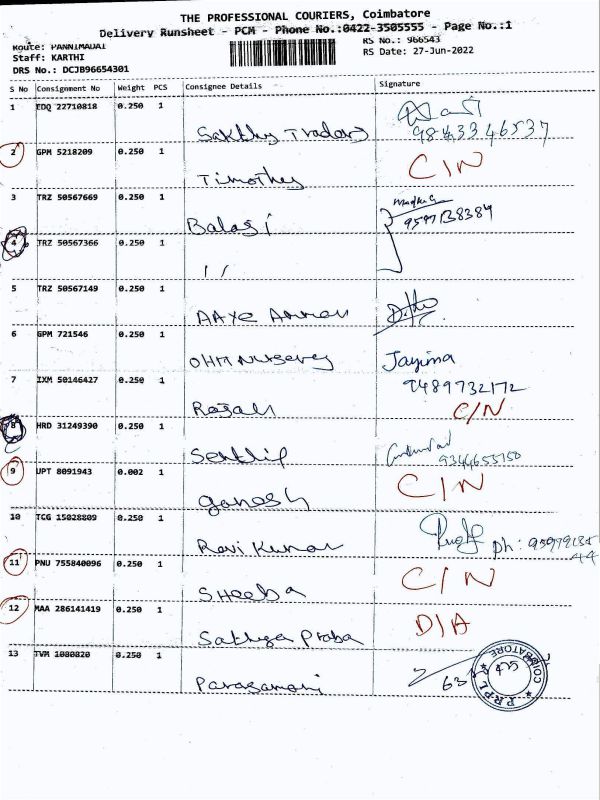 THE PROFESSIONAL COURIERS, Coimbatore
Delivery Runsheet - PCM - Phone No.:0422-3505555 - Page No.:1
Route: PANNIMADAI
RS No.: 966543
Staff: KARTHI
RS Date: 27-Jun-2022
DRS No.: DCJB96654301
S No Consignment No Weight PCS Consignee Details Signature
1 EDQ 22710818 0.250 1
Sakthy Traders 9843346537
2 GPM 5218209 0.250 1 C/N
Timothey
3 TRZ 50567669 0.250 1
Balaji 9597138384
4 TRZ 50567366 0.250 1
11
5 TRZ 50567149 0.250 1
6 GPM 721546 0.250 1
OHM Nursery Jayima
7 IXM 50146427 0.250 1 9489732172
Rajah C/N
8 HRD 31249390 0.250 1
Senthil 9344653750
9 UPT 8091943 0.002 1 C/N
Ganesh
10 TCG 15028809 0.250 1
Ravi Kumar Ph:
11 PNU 755840096 0.250 1 C/N
Sheeba
12 MAA 286141419 0.250 1 D/A
Sathya Praba
13 TVM 1080820 0.250 1
63
COIMBATORE
PRPL
425